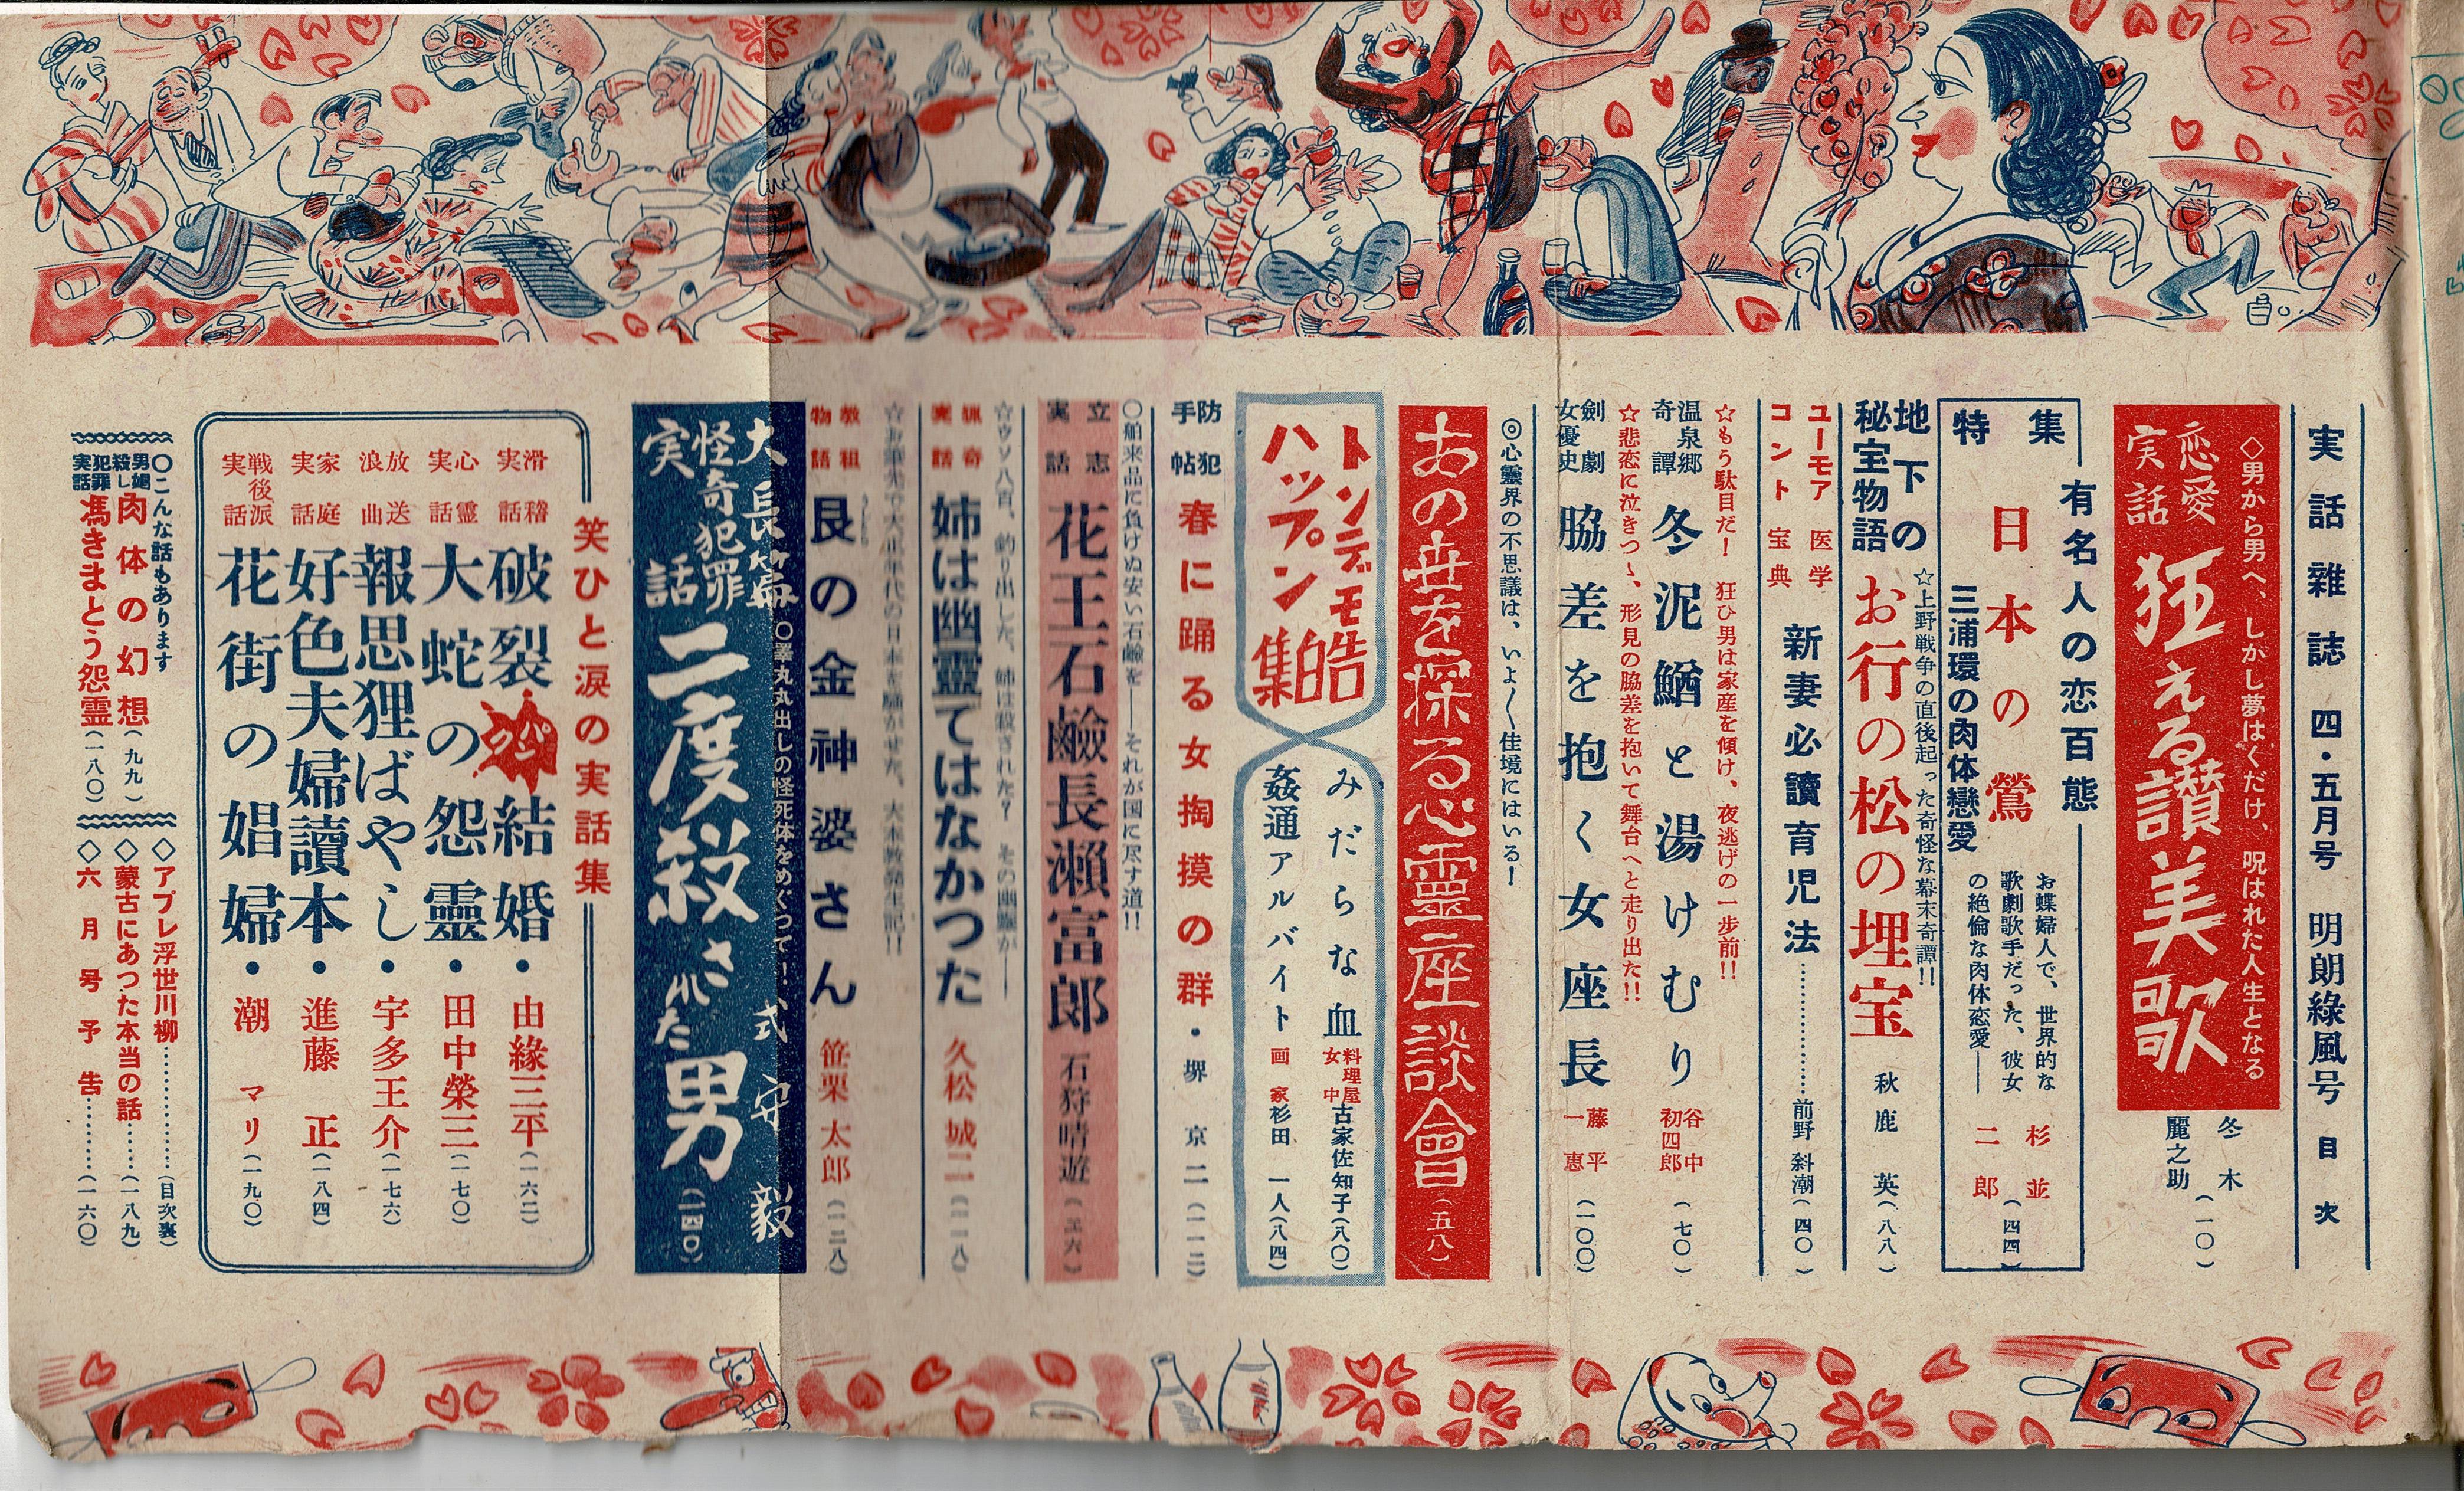 実話雑誌 四・五月号 明朗綠風号 目次
◇男から男へ、しがし夢はくだけ、呪はれた人生となる
恋愛実話 狂える讃美歌 冬木麗之助(一〇)
有名人の恋百態
特集 日本の鶯 杉並二郎(四四)
三浦環の肉体戀愛
お蝶婦人で、世界的な
歌劇歌手だった、彼女
の絶倫な肉体恋愛――
☆上野戦争の直後起った奇怪な幕末奇譚!!
地下の秘宝物語 お行の松の埋宝 秋鹿英(八八)
ユーモア医学コント宝典 新妻必讀育児法…………前野斜潮(四〇)
☆もう駄目だ! 狂ひ男は家産を傾け、夜逃げの一歩前!!
温泉郷奇譚 冬泥鰌と湯けむり 谷中初四郎(七〇)
☆悲恋に泣きつゝ、形見の脇差を抱いて舞台へと走り出た!!
劍劇女優史 脇差を抱く女座長 藤平一恵(一〇〇)
◎心靈界の不思議は、いよ〳〵佳境にはいる!
あの世を探る心靈座談會(五八)
トンデモハップン告白集
みだらな血 料理屋女中 古家佐知子(八〇)
姦通アルバイト 画家 杉田一人(八四)
防犯手帖 春に踊る女掏摸の群・堺京二(一一二)
〇舶来品に負けぬ安い石鹼を――それが国に尽す道!!
立志実話 花王石鹼長瀬富郎 石狩晴遊
☆ウソ八百、釣り出した、姉は殺された? その幽靈が――
猟奇実話 姉は幽靈てはなかつた 久松城二(一一八)
教祖物語 艮の金神婆さん 笹栗太郎(一二八)
〇睪丸丸出しの怪死体をめぐって!
大長篇怪奇犯罪実話 二度殺された男 式守毅(一四〇)
笑ひと涙の実話集
滑稽実話 破裂パン結婚・由縁三平(一六二)
心靈実話 大蛇の怨靈・田中榮三(一七〇)
放送浪曲 報思狸ばやし・宇多王介(一七六)
家庭実話 好色夫婦讀本・進藤正(一八四)
戦後派実話 花街の娼婦・潮マリ(一九〇)
〇こんな話もあります
男娼殺し 肉体の幻想(九九)
犯罪実話 馮きまとう怨霊(一八〇)
◇アプレ浮世川柳…………(目次裏)
◇蒙古にあつた本当の話……(一八九)
◇六月号予告…………(一六〇)